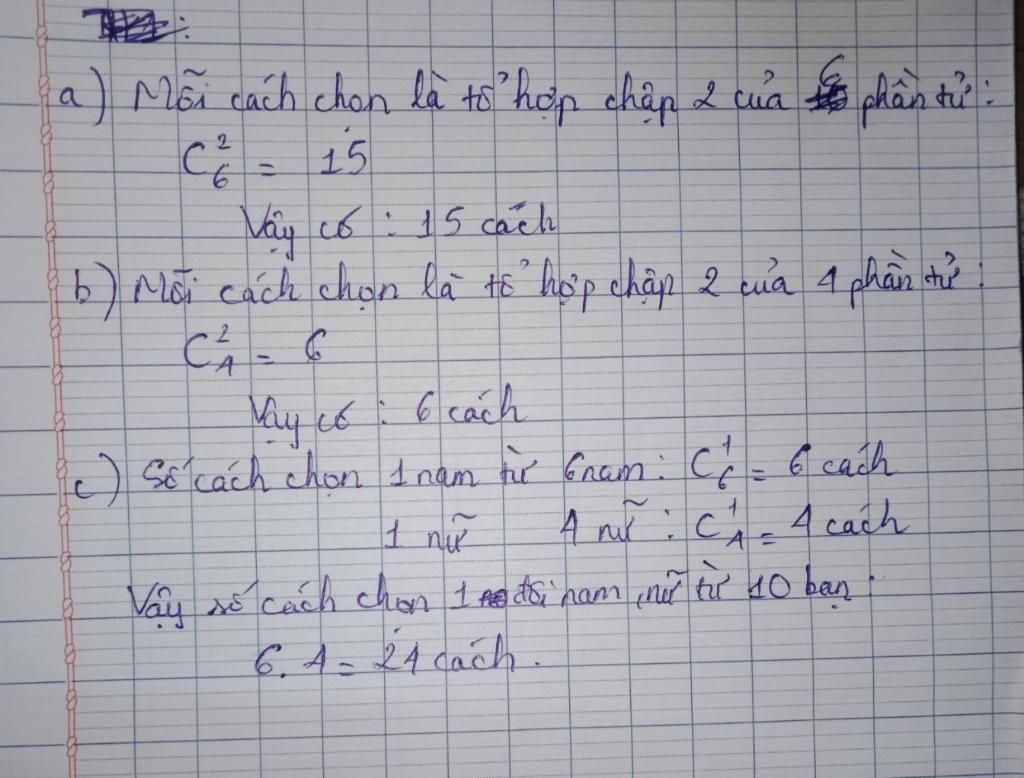 a) Mỗi cách chọn là tổ hợp chập 2 của 6 phần tử:
C²₆ = 15
Vậy có : 15 cách
b) Mỗi cách chọn là tổ hợp chập 2 của 4 phần tử:
C²₄ = 6
Vậy có : 6 cách
c) Số cách chọn 1 nam từ 6 nam: C¹₆ = 6 cách
1 nữ 4 nữ : C¹₄ = 4 cách
Vậy số cách chọn 1 đôi nam, nữ từ 10 bạn:
6. 4 = 24 cách.